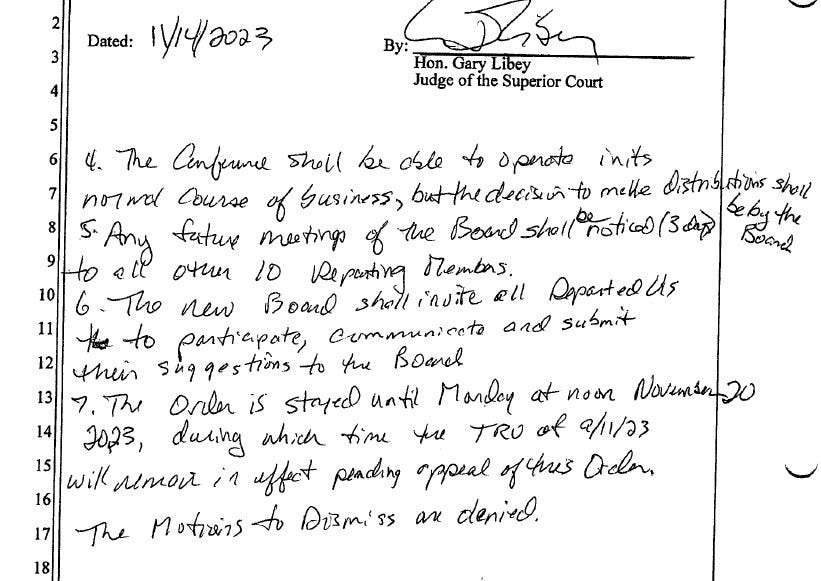 2
Dated: 11/14/2023
By:
3
Hon. Gary Libey
4
Judge of the Superior Court
5
6 4. The Conference shall be able to operate in its
7 normal course of business, but the decision to make distributions shall be by the Board
8 5. Any future meetings of the Board shall be noticed (3 days)
9 to all other 10 Departing Members.
10 6. The new Board shall invite all Departed Us
11 to participate, communicate and submit
12 their suggestions to the Board
13 7. The Order is stayed until Monday at noon November 20
14 2023, during which time the TRO of 9/11/23
15 will remain in effect pending appeal of this Order.
16
17 The Motions to Dismiss are denied.
18